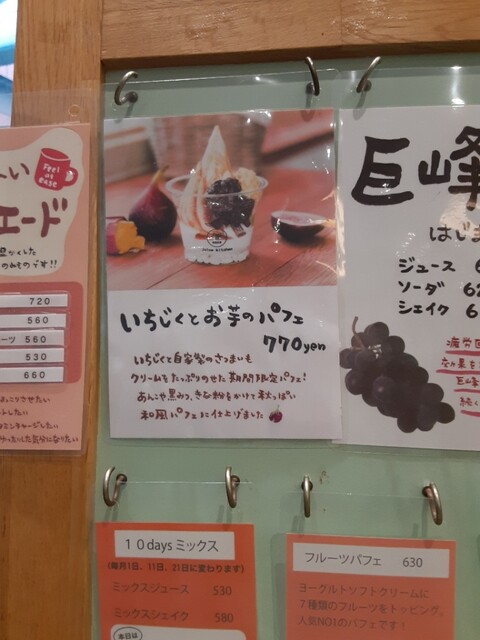 い
Feel
at
ease
エード
のみものです!!
720
560
ーツ 560
530
660
まったりした気分になりたい
いちじくとお芋のパフェ
770yen
いちじくと自家製のさつまいも
クリームをたっぷりのせた期間限定パフェ!
あんこや黒みつ、きな粉をかけて秋っぽい
和風パフェに仕上げました
巨峰
はじま
ジュース 6
ソーダ 62
シェイク 6
疲労回
効果を
巨峰
続く
10daysミックス
(毎月1日、11日、21日に変わります)
ミックスジュース 530
ミックスシェイク 580
本日は
フルーツパフェ 630
ヨーグルトソフトクリームに
7種類のフルーツをトッピング。
人気NO1のパフェです!